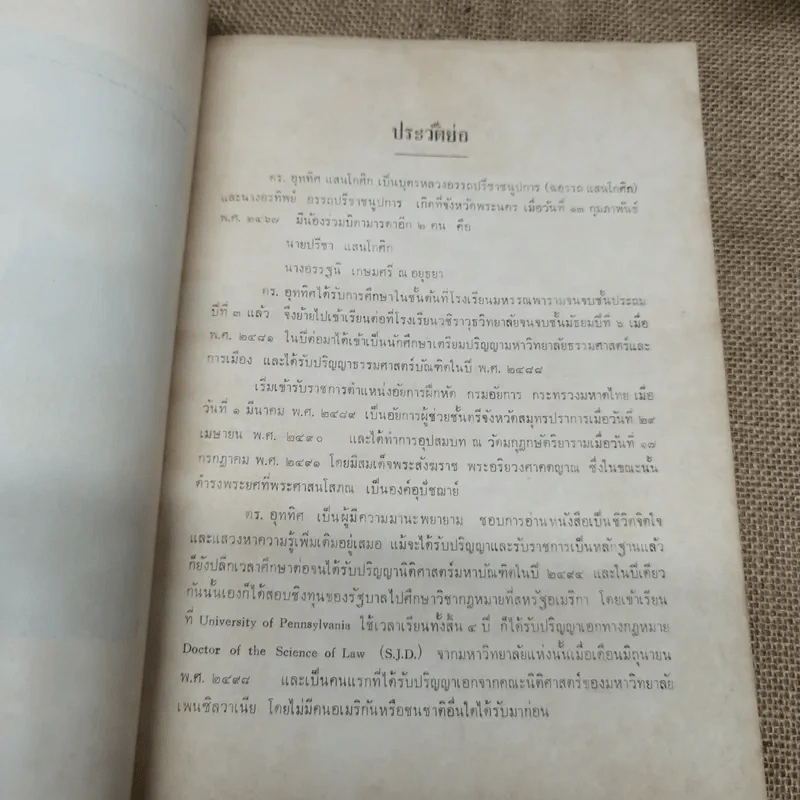 ประวัติย่อ
ดร. อุททิศ แสนโกศิก เป็นบุตรหลวงอรรถปรีชาชนูปการ (ฉอรรถ แสนโกศิก)
และนางอรทิพย์ อรรถปรีชาชนูปการ เกิดที่จังหวัดพระนคร เมื่อวันที่ ๑๓ กุมภาพันธ์
พ.ศ. ๒๔๖๗ มีน้องร่วมบิดามารดาอีก ๒ คน คือ
นายปรีชา แสนโกศิก
นางอรรฐนี เกษมศรี ณ อยุธยา
ดร. อุททิศได้รับการศึกษาในชั้นต้นที่โรงเรียนมหรรณพารามจนจบชั้นประถม
ปีที่ ๓ แล้ว จึงย้ายไปเข้าเรียนต่อที่โรงเรียนวชิราวุธวิทยาลัยจนจบชั้นมัธยมปีที่ ๖ เมื่อ
พ.ศ. ๒๔๘๑ ในปีต่อมาได้เข้าเป็นนักศึกษาเตรียมปริญญามหาวิทยาลัยธรรมศาสตร์และ
การเมือง และได้รับปริญญาธรรมศาสตร์บัณฑิตในปี พ.ศ. ๒๔๘๘
เริ่มเข้ารับราชการตำแหน่งอัยการฝึกหัด กรมอัยการ กระทรวงมหาดไทย เมื่อ
วันที่ ๑ มีนาคม พ.ศ. ๒๔๘๙ เป็นอัยการผู้ช่วยชั้นตรีจังหวัดสมุทรปราการเมื่อวันที่ ๒๙
เมษายน พ.ศ. ๒๔๙๐ และได้ทำการอุปสมบท ณ วัดมกุฏกษัตริยารามเมื่อวันที่ ๑๗
กรกฎาคม พ.ศ. ๒๔๙๑ โดยมีสมเด็จพระสังฆราช พระอริยวงศาคตญาณ ซึ่งในขณะนั้น
ดำรงพระยศที่พระศาสนโสภณ เป็นองค์อุปัชฌาย์
ดร. อุททิศ เป็นผู้มีความมานะพยายาม ชอบการอ่านหนังสือเป็นชีวิตจิตใจ
และแสวงหาความรู้เพิ่มเติมอยู่เสมอ แม้จะได้รับปริญญาและรับราชการเป็นหลักฐานแล้ว
ก็ยังปลีกเวลาศึกษาต่อจนได้รับปริญญานิติศาสตร์มหาบัณฑิตในปี ๒๔๙๔ และในปีเดียว
กันนั้นเองก็ได้สอบชิงทุนของรัฐบาลไปศึกษาวิชากฎหมายที่สหรัฐอเมริกา โดยเข้าเรียน
ที่ University of Pennsylvania ใช้เวลาเรียนทั้งสิ้น ๔ ปี ก็ได้รับปริญญาเอกทางกฎหมาย
Doctor of the Science of Law (S.J.D.) จากมหาวิทยาลัยแห่งนั้นเมื่อเดือนมิถุนายน
พ.ศ. ๒๔๙๘ และเป็นคนแรกที่ได้รับปริญญาเอกจากคณะนิติศาสตร์ของมหาวิทยาลัย
เพนซิลวาเนีย โดยไม่มีคนอเมริกันหรือชนชาติอื่นใดได้รับมาก่อน